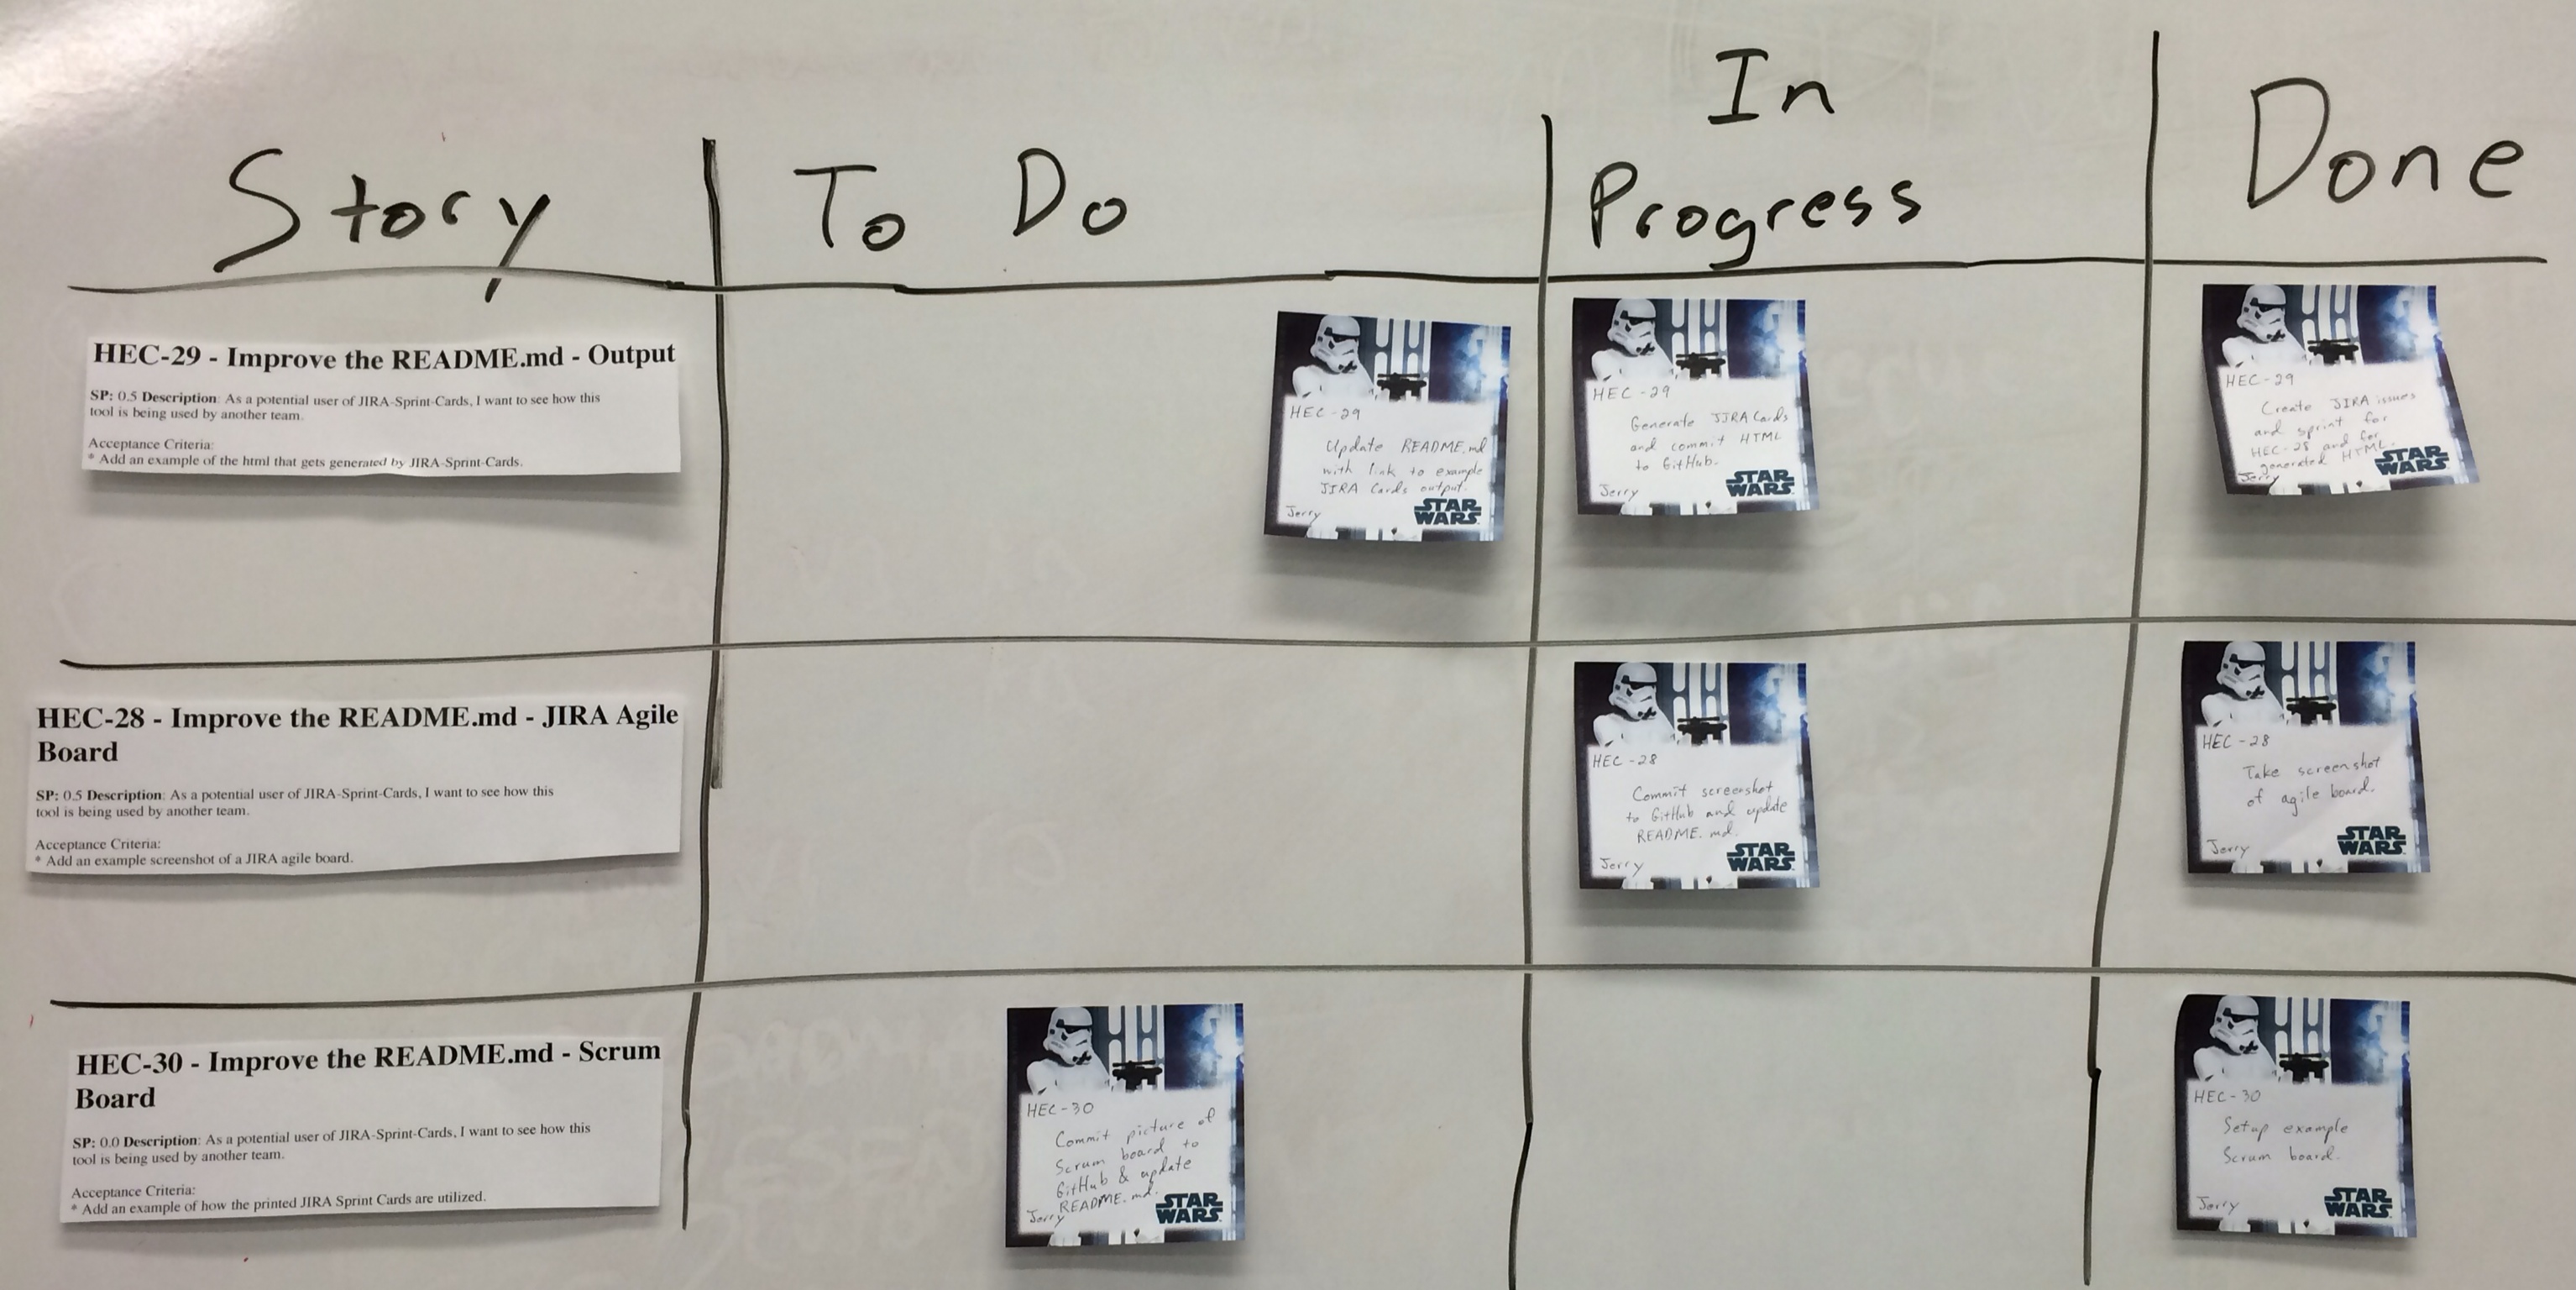 Story
To Do
In
Progress
Done
HEC-29 - Improve the README.md - Output
SP: 0.5 Description: As a potential user of JIRA-Sprint-Cards, I want to see how this
tool is being used by another team.
Acceptance Criteria:
* Add an example of the html that gets generated by JIRA-Sprint-Cards.
HEC-29
Update README.md
with link to example
JIRA Cards output.
Jerry
STAR
WARS
HEC-29
Generate JIRA Cards
and commit HTML
to GitHub.
Jerry
STAR
WARS
HEC-29
Create JIRA issues
and sprint for
HEC-28 and for
generated HTML.
Jerry
STAR
WARS
HEC-28 - Improve the README.md - JIRA Agile
Board
SP: 0.5 Description: As a potential user of JIRA-Sprint-Cards, I want to see how this
tool is being used by another team.
Acceptance Criteria:
* Add an example screenshot of a JIRA agile board.
HEC-28
Commit screenshot
to GitHub and update
README.md.
Jerry
STAR
WARS
HEC-28
Take screenshot
of agile board.
Jerry
STAR
WARS
HEC-30 - Improve the README.md - Scrum
Board
SP: 0.0 Description: As a potential user of JIRA-Sprint-Cards, I want to see how this
tool is being used by another team.
Acceptance Criteria:
* Add an example of how the printed JIRA Sprint Cards are utilized.
HEC-30
Commit picture of
Scrum board to
GitHub & update
README.md.
Jerry
STAR
WARS
HEC-30
Setup example
Scrum board.
Jerry
STAR
WARS